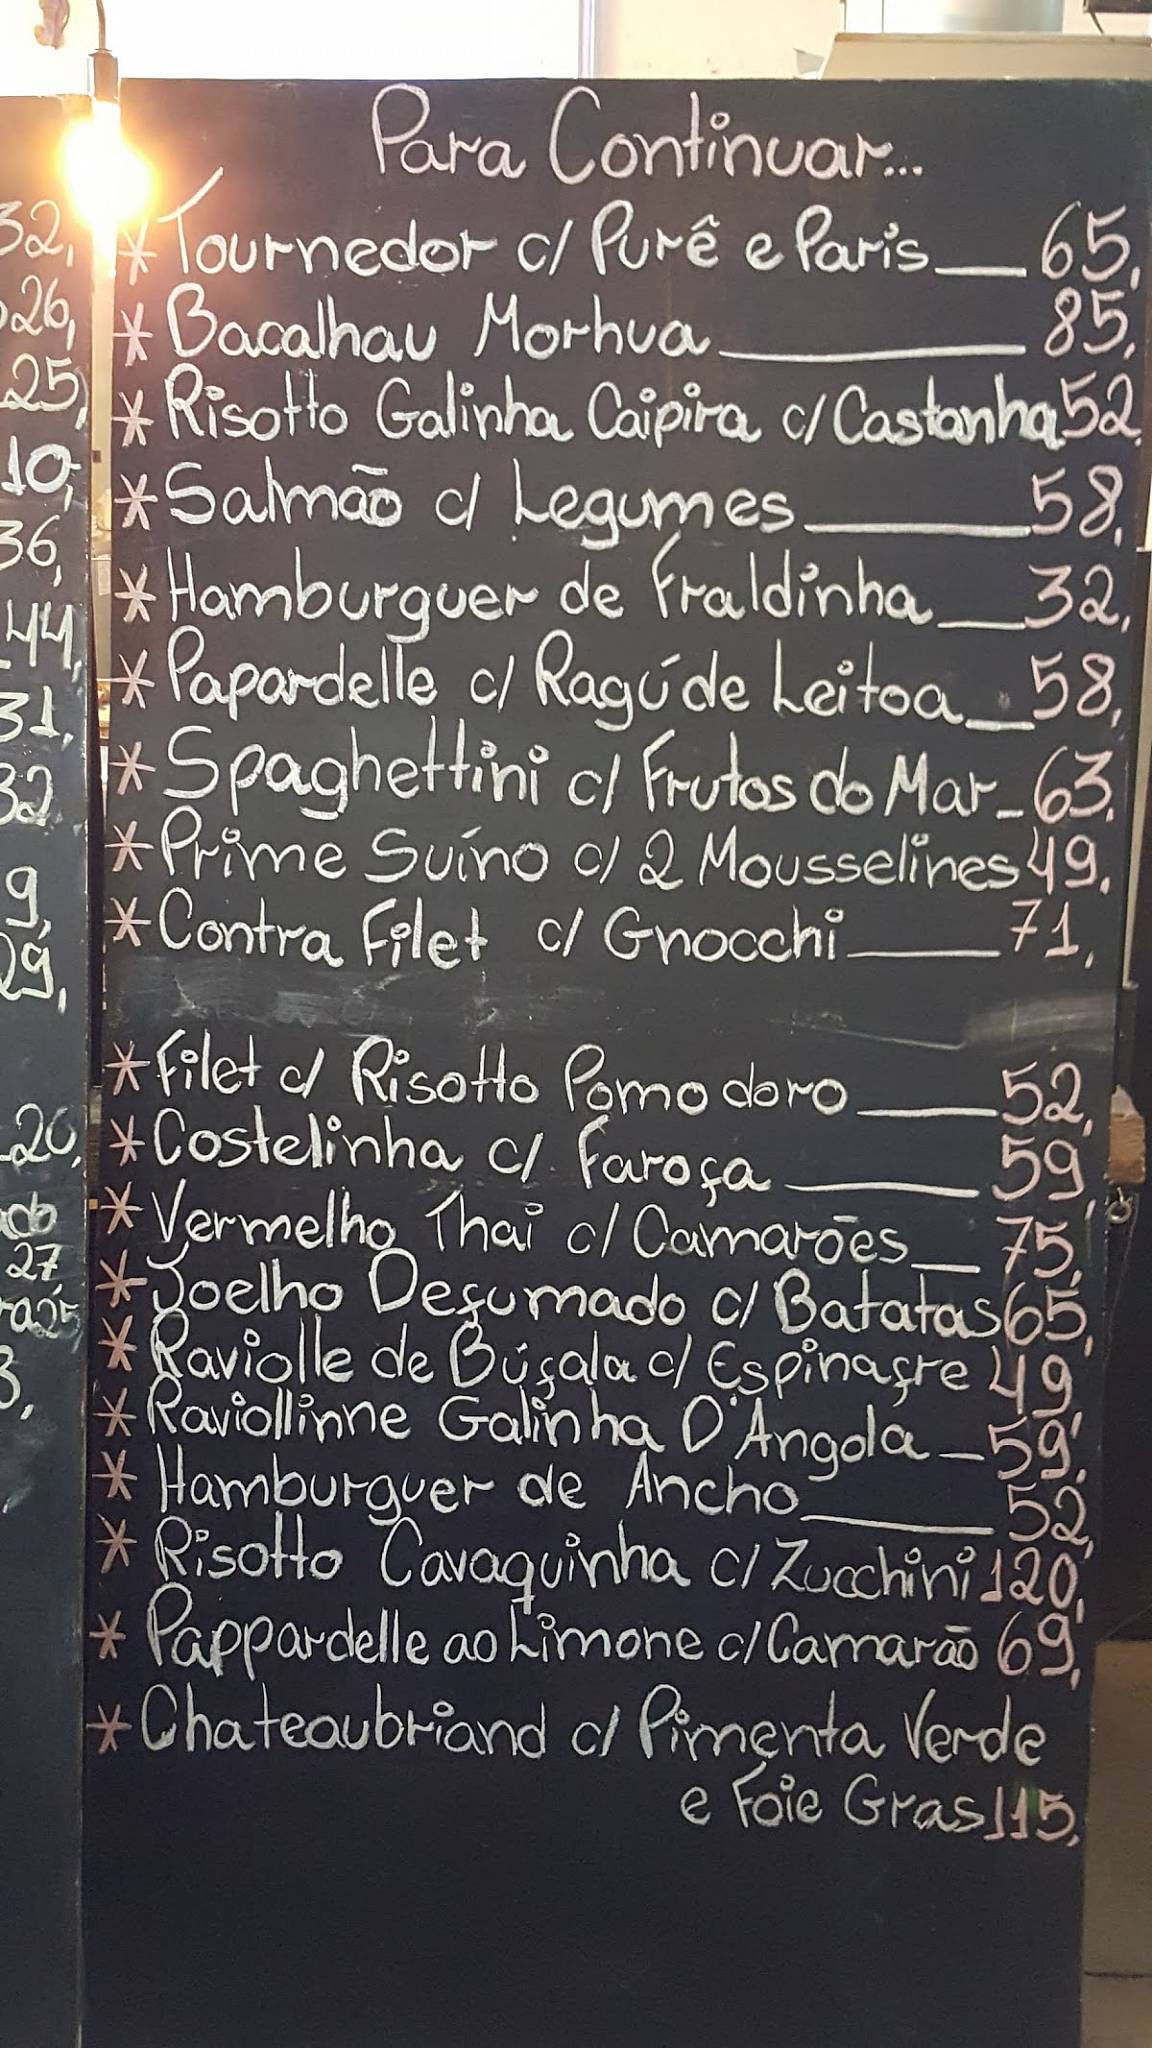 Para Continuar...
32,
* Tournedor c/ Purê e Paris 65,
26,
* Bacalhau Morhua 85,
25,
* Risotto Galinha Caipira c/ Castanha 52,
10,
* Salmão c/ Legumes 58,
36,
* Hamburguer de Fraldinha 32,
44,
* Papardelle c/ Ragú de Leitoa 58,
31,
* Spaghettini c/ Frutos do Mar - 63,
32
* Prime Suíno c/ 2 Mousselines 49,
9,
* Contra Filet c/ Gnocchi 71,
29,
* Filet c/ Risotto Pomodoro 52,
20,
* Costelinha c/ Farofa 59,
* Vermelho Thai c/ Camarões 75,
27
* Joelho Defumado c/ Batatas 65,
* Raviolle de Búfala c/ Espinafre 49,
* Raviollinne Galinha D'Angola - 59,
* Hamburguer de Ancho 52,
* Risotto Cavaquinha c/ Zucchini 120,
* Pappardelle ao Limone c/ Camarão 69,
* Chateaubriand c/ Pimenta Verde
e Foie Gras 115,